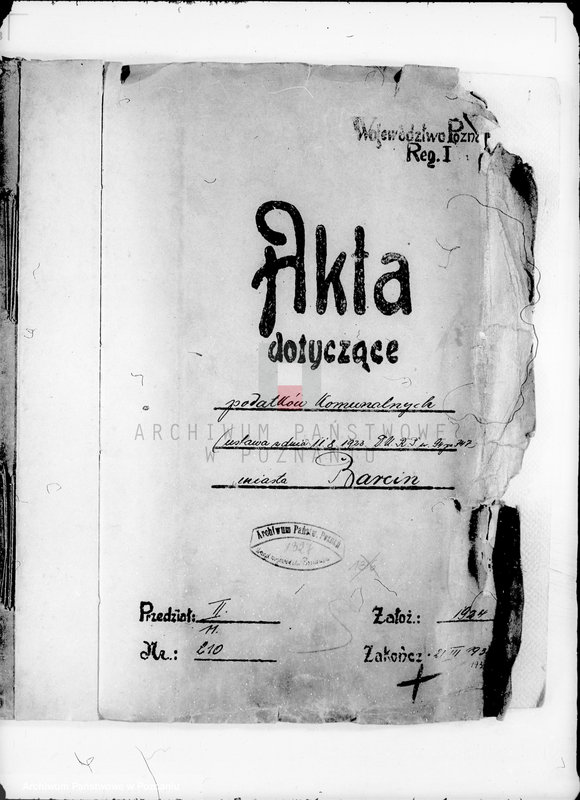 Województwo Pozn
Reg. I
Akta
dotyczące
podatków komunalnych
ARCHIWUM PAŃSTWOWE
W POZNANIU
(ustawa z dnia 11.8.1923. DURP. n. 94 p. 747
miasta Barcin
Archiwum Państw. Poznań
1327
Urząd Wojewódzki
Przedział: II.
11.
Załoź.: 1924
Nr.: 210
Zakończ. 21 III 193
Archiwum Państwowe w Poznaniu